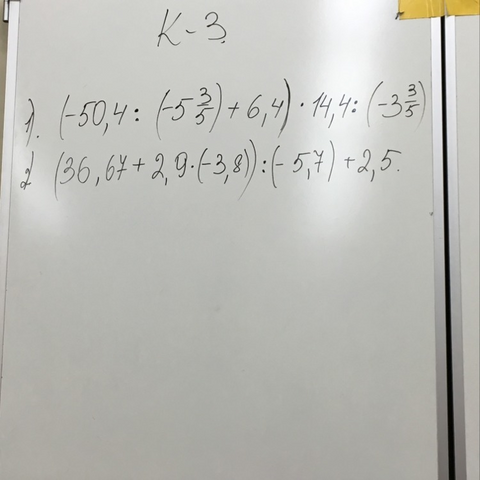 К-3.
1). (-50,4 : (-5 3/5) + 6,4) · 14,4 : (-3 3/5)
2) (36,67 + 2,9 · (-3,8)) : (-5,7) + 2,5.